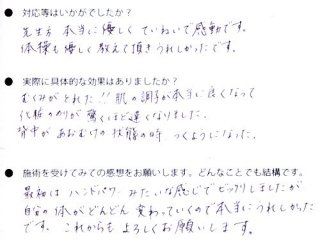 ● 対応等はいかがでしたか？
先生方 本当に優しく ていねいで感動です。
体操も優しく教えて頂きうれしかったです。
● 実際に具体的な効果はありましたか？
むくみがとれた!! 肌の調子が本当に良くなって
化粧ののりが驚くほど違くなりました。
背中があおむけの状態の時 つくようになった。
● 施術を受けてみての感想をお願いします。どんなことでも結構です。
最初は ハンドパワーみたいな感じでビックリしましたが
自分の体がどんどん変わっていくので本当にうれしかった
です。これからもよろしくお願いします。